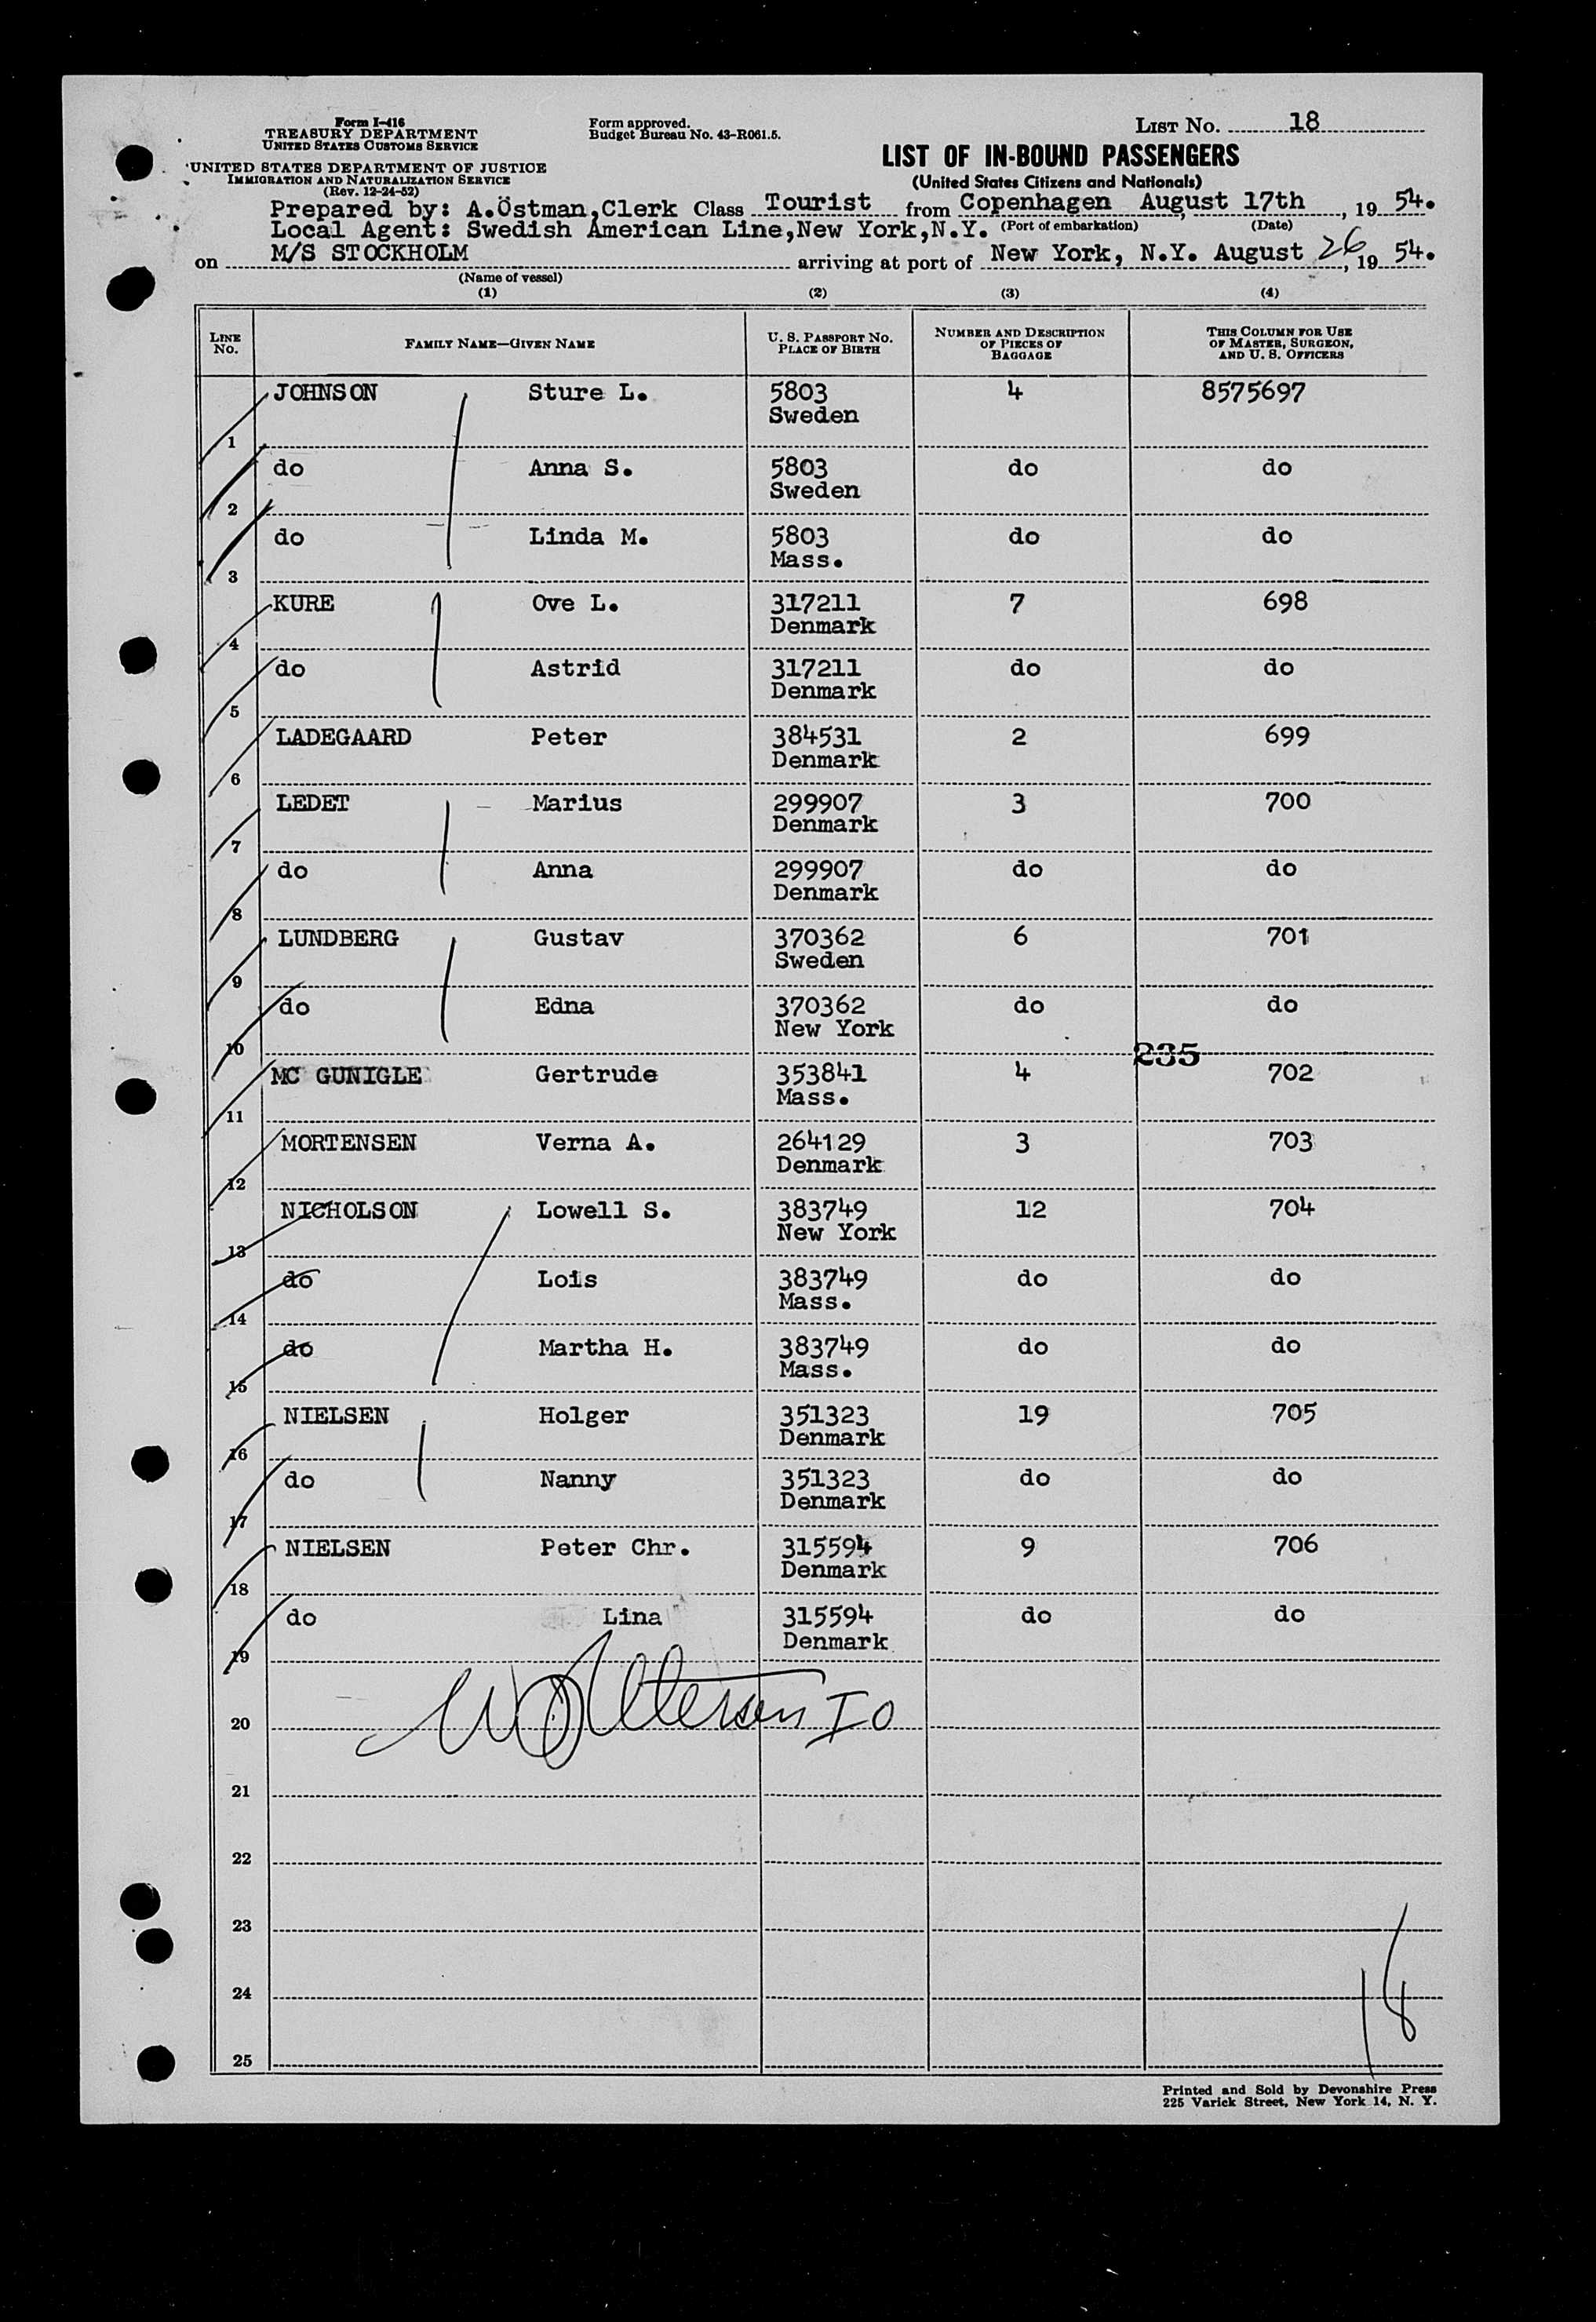 Form I-416
TREASURY DEPARTMENT
UNITED STATES CUSTOMS SERVICE
UNITED STATES DEPARTMENT OF JUSTICE
IMMIGRATION AND NATURALIZATION SERVICE
(Rev. 12-24-52)
Form approved.
Budget Bureau No. 43-R061.5.
LIST No. 18
LIST OF IN-BOUND PASSENGERS
(United States Citizens and Nationals)
Prepared by: A.Östman,Clerk Class Tourist from Copenhagen August 17th, 19 54.
Local Agent: Swedish American Line,New York,N.Y. (Port of embarkation) (Date)
on M/S STOCKHOLM arriving at port of New York, N.Y. August 26, 19 54.
(Name of vessel)
(1) (2) (3) (4)
LINE No. FAMILY NAME—GIVEN NAME U. S. PASSPORT No. PLACE OF BIRTH NUMBER AND DESCRIPTION OF PIECES OF BAGGAGE THIS COLUMN FOR USE OF MASTER, SURGEON, AND U. S. OFFICERS
1 JOHNSON Sture L. 5803 4 8575697
Sweden
2 do Anna S. 5803 do do
Sweden
3 do Linda M. 5803 do do
Mass.
4 KURE Ove L. 317211 7 698
Denmark
5 do Astrid 317211 do do
Denmark
6 LADEGAARD Peter 384531 2 699
Denmark
7 LEDET Marius 299907 3 700
Denmark
8 do Anna 299907 do do
Denmark
9 LUNDBERG Gustav 370362 6 701
Sweden
10 do Edna 370362 do do
New York
235
11 MC GUNIGLE Gertrude 353841 4 702
Mass.
12 MORTENSEN Verna A. 264129 3 703
Denmark
13 NICHOLSON Lowell S. 383749 12 704
New York
14 do Lois 383749 do do
Mass.
15 do Martha H. 383749 do do
Mass.
16 NIELSEN Holger 351323 19 705
Denmark
17 do Nanny 351323 do do
Denmark
18 NIELSEN Peter Chr. 315594 9 706
Denmark
19 do Lina 315594 do do
Denmark
20 IO
21
22
23
24
25
18
Printed and Sold by Devonshire Press
225 Varick Street, New York 14, N. Y.